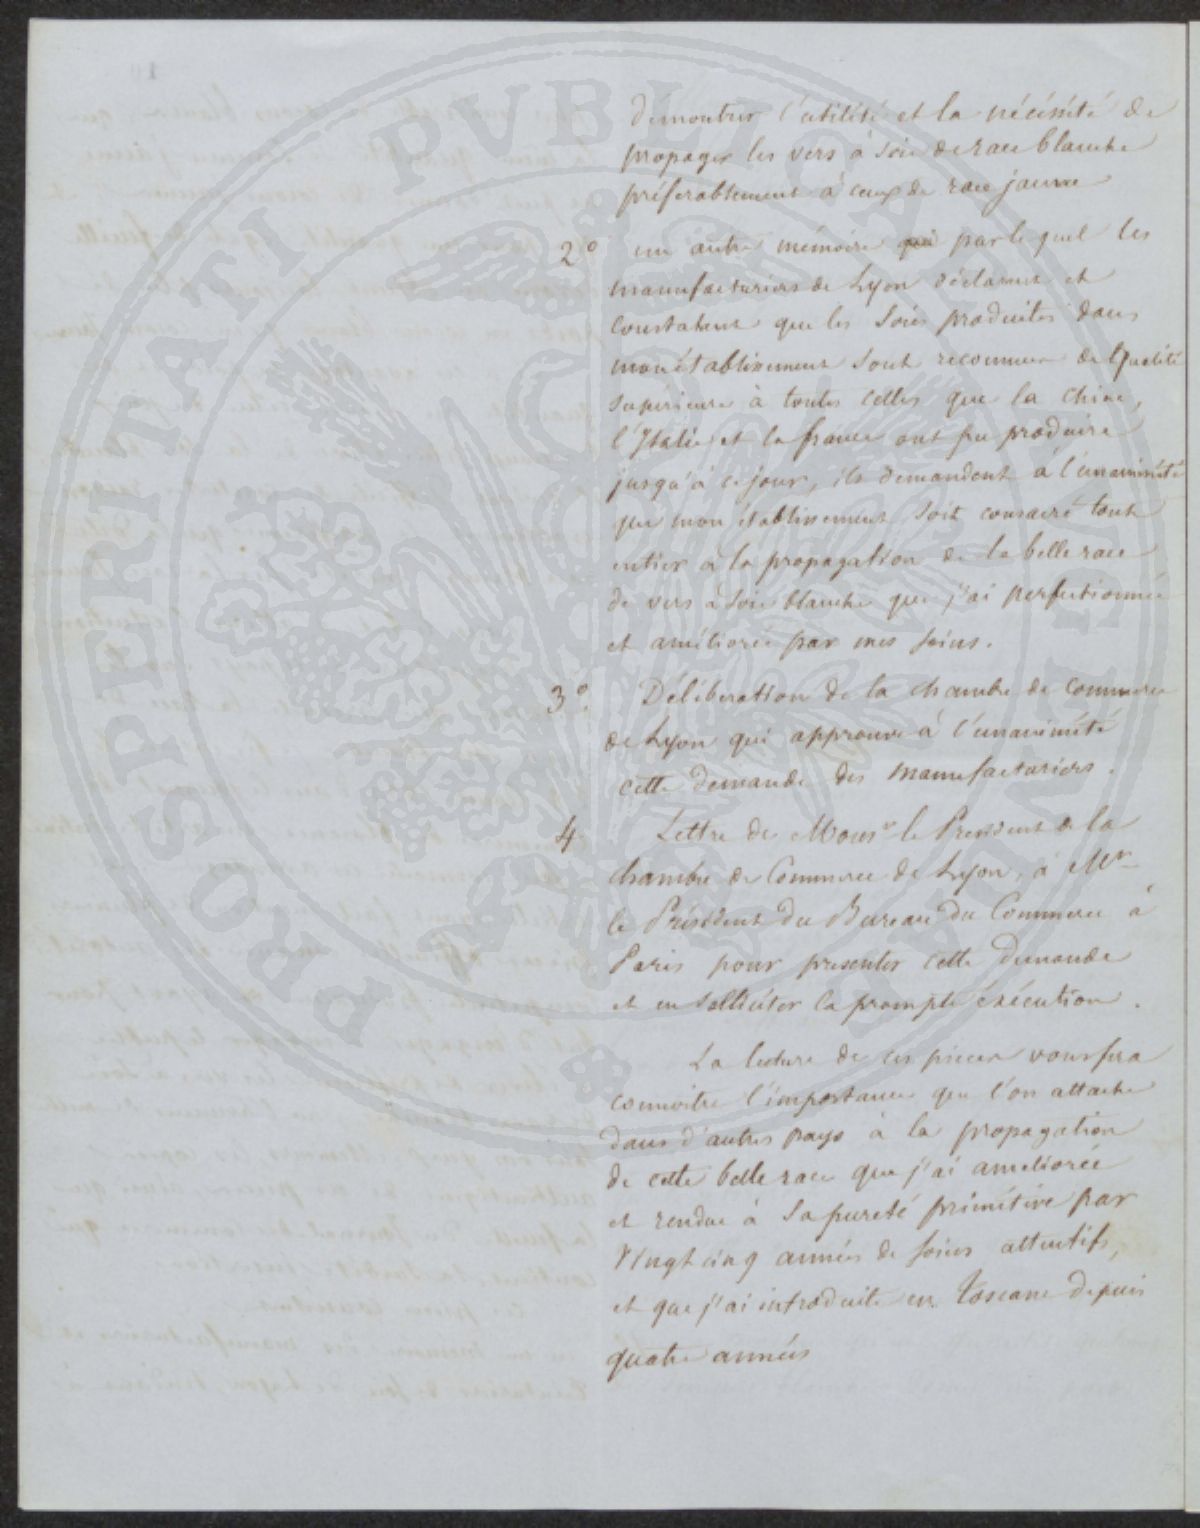 démontrer l'utilité et la nécéssité de
propager les vers à soie de race blanche
préferablement à ceux de race jaune
2° un autre mémoire qui par le quel les
manufacturiers de Lyon déclarent et
constatent que les soies produites dans
mon établissement sont reconnues de qualité
supérieure à toutes celles que la Chine,
l'Italie et la france ont pu produire
jusqu'à ce jour, ils demandent à l'unanimité
que mon établissement soit consacré tout
entier à la propagation de la belle race
de vers à soie blanche que j'ai perfectionnée
et améliorée par mes soins.
3° Délibération de la chambre de commerce
de Lyon qui approuve à l'unanimité
cette demande des manufacturiers.
4 Lettre de Monsr le President de la
chambre de Commerce de Lyon, à Mr
le Président du Bureau du Commerce à
Paris pour presenter cette demande
et en solliciter la prompte éxécution.
La lecture de ces pieces vous fera
connoitre l'importance que l'on attache
dans d'autres pays à la propagation
de cette belle race que j'ai améliorée
et rendue à sa pureté primitive par
Vingt cinq années de soins attentifs,
et que j'ai introduite en Toscane depuis
quatre années
PROSPERITATI PVBLICAE AVGENDAE